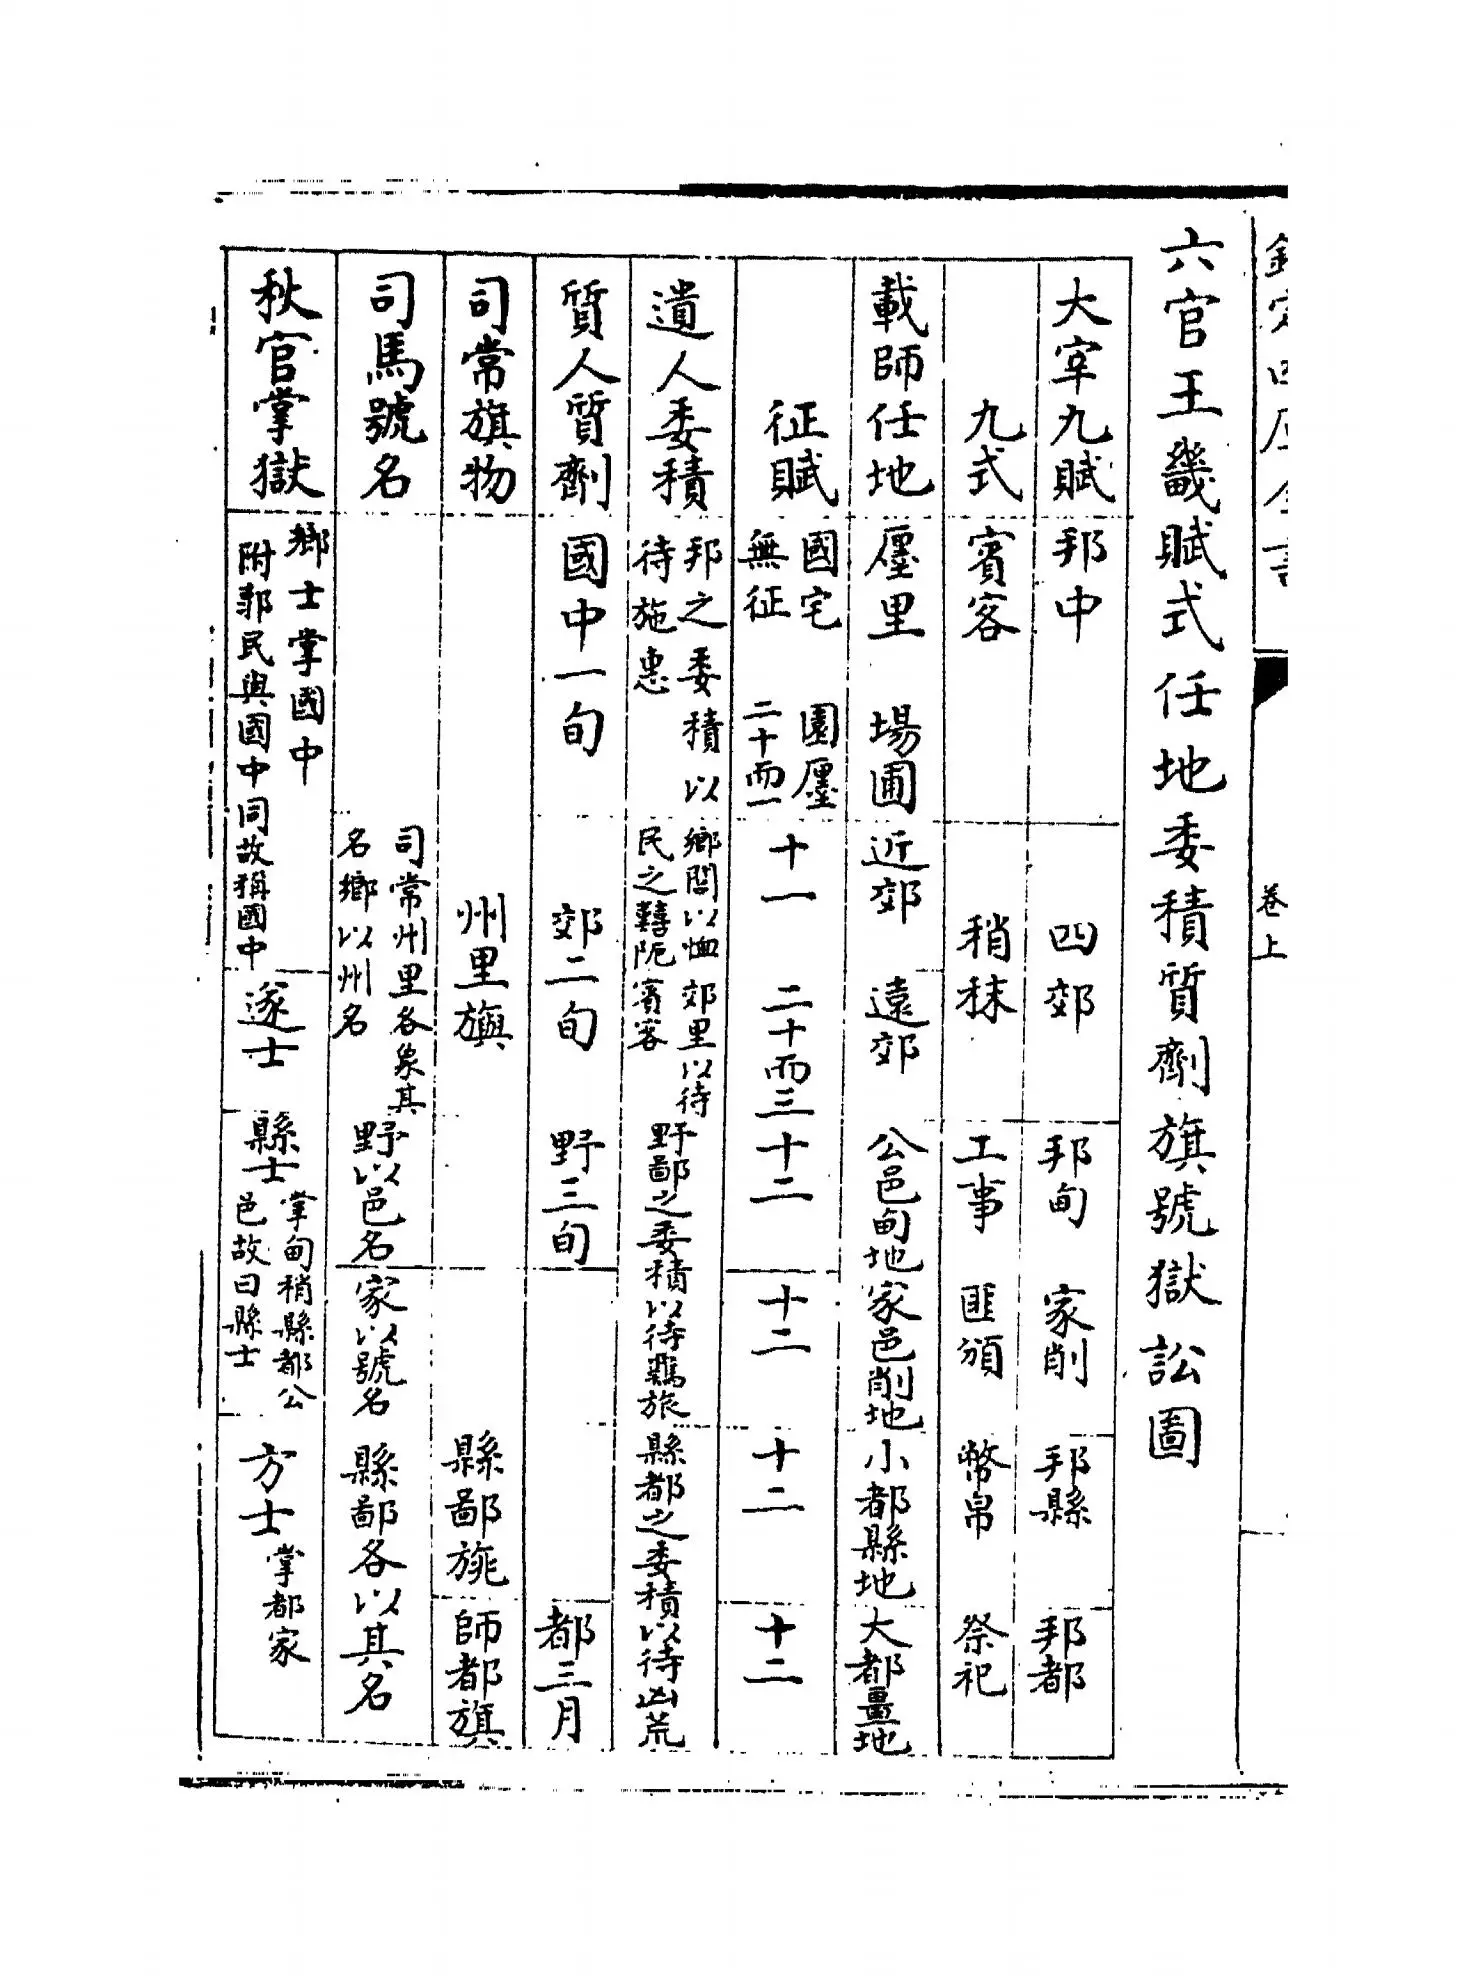 欽定四庫全書
卷上
六官王畿賦式任地委積質劑旗號獄訟圖
大宰九賦 邦中 四郊 邦甸 家削 邦縣 邦都
九式 賓客 稍秣 工事 匪頒 幣帛 祭祀
載師任地 廛里 場圃 近郊 遠郊 公邑甸地 家邑削地 小都縣地 大都畺地
征賦 國宅無征 園廛二十而一 十一 二十而三 十二 十二 十二 十二
遺人委積 邦之委積以待施惠 鄉閭以恤民之囏阨 郊里以待賓客 野鄙之委積以待羈旅 縣都之委積以待凶荒
質人質劑 國中一旬 郊二旬 野三旬 都三月
司常旗物 州里旟 縣鄙旐 師都旗
司馬號名 司常州里各象其名鄉以州名 野以邑名 家以號名 縣鄙各以其名
秋官掌獄 鄉士掌國中附郭民與國中同故稱國中 遂士 縣士掌甸稍縣都公邑故曰縣士 方士掌都家